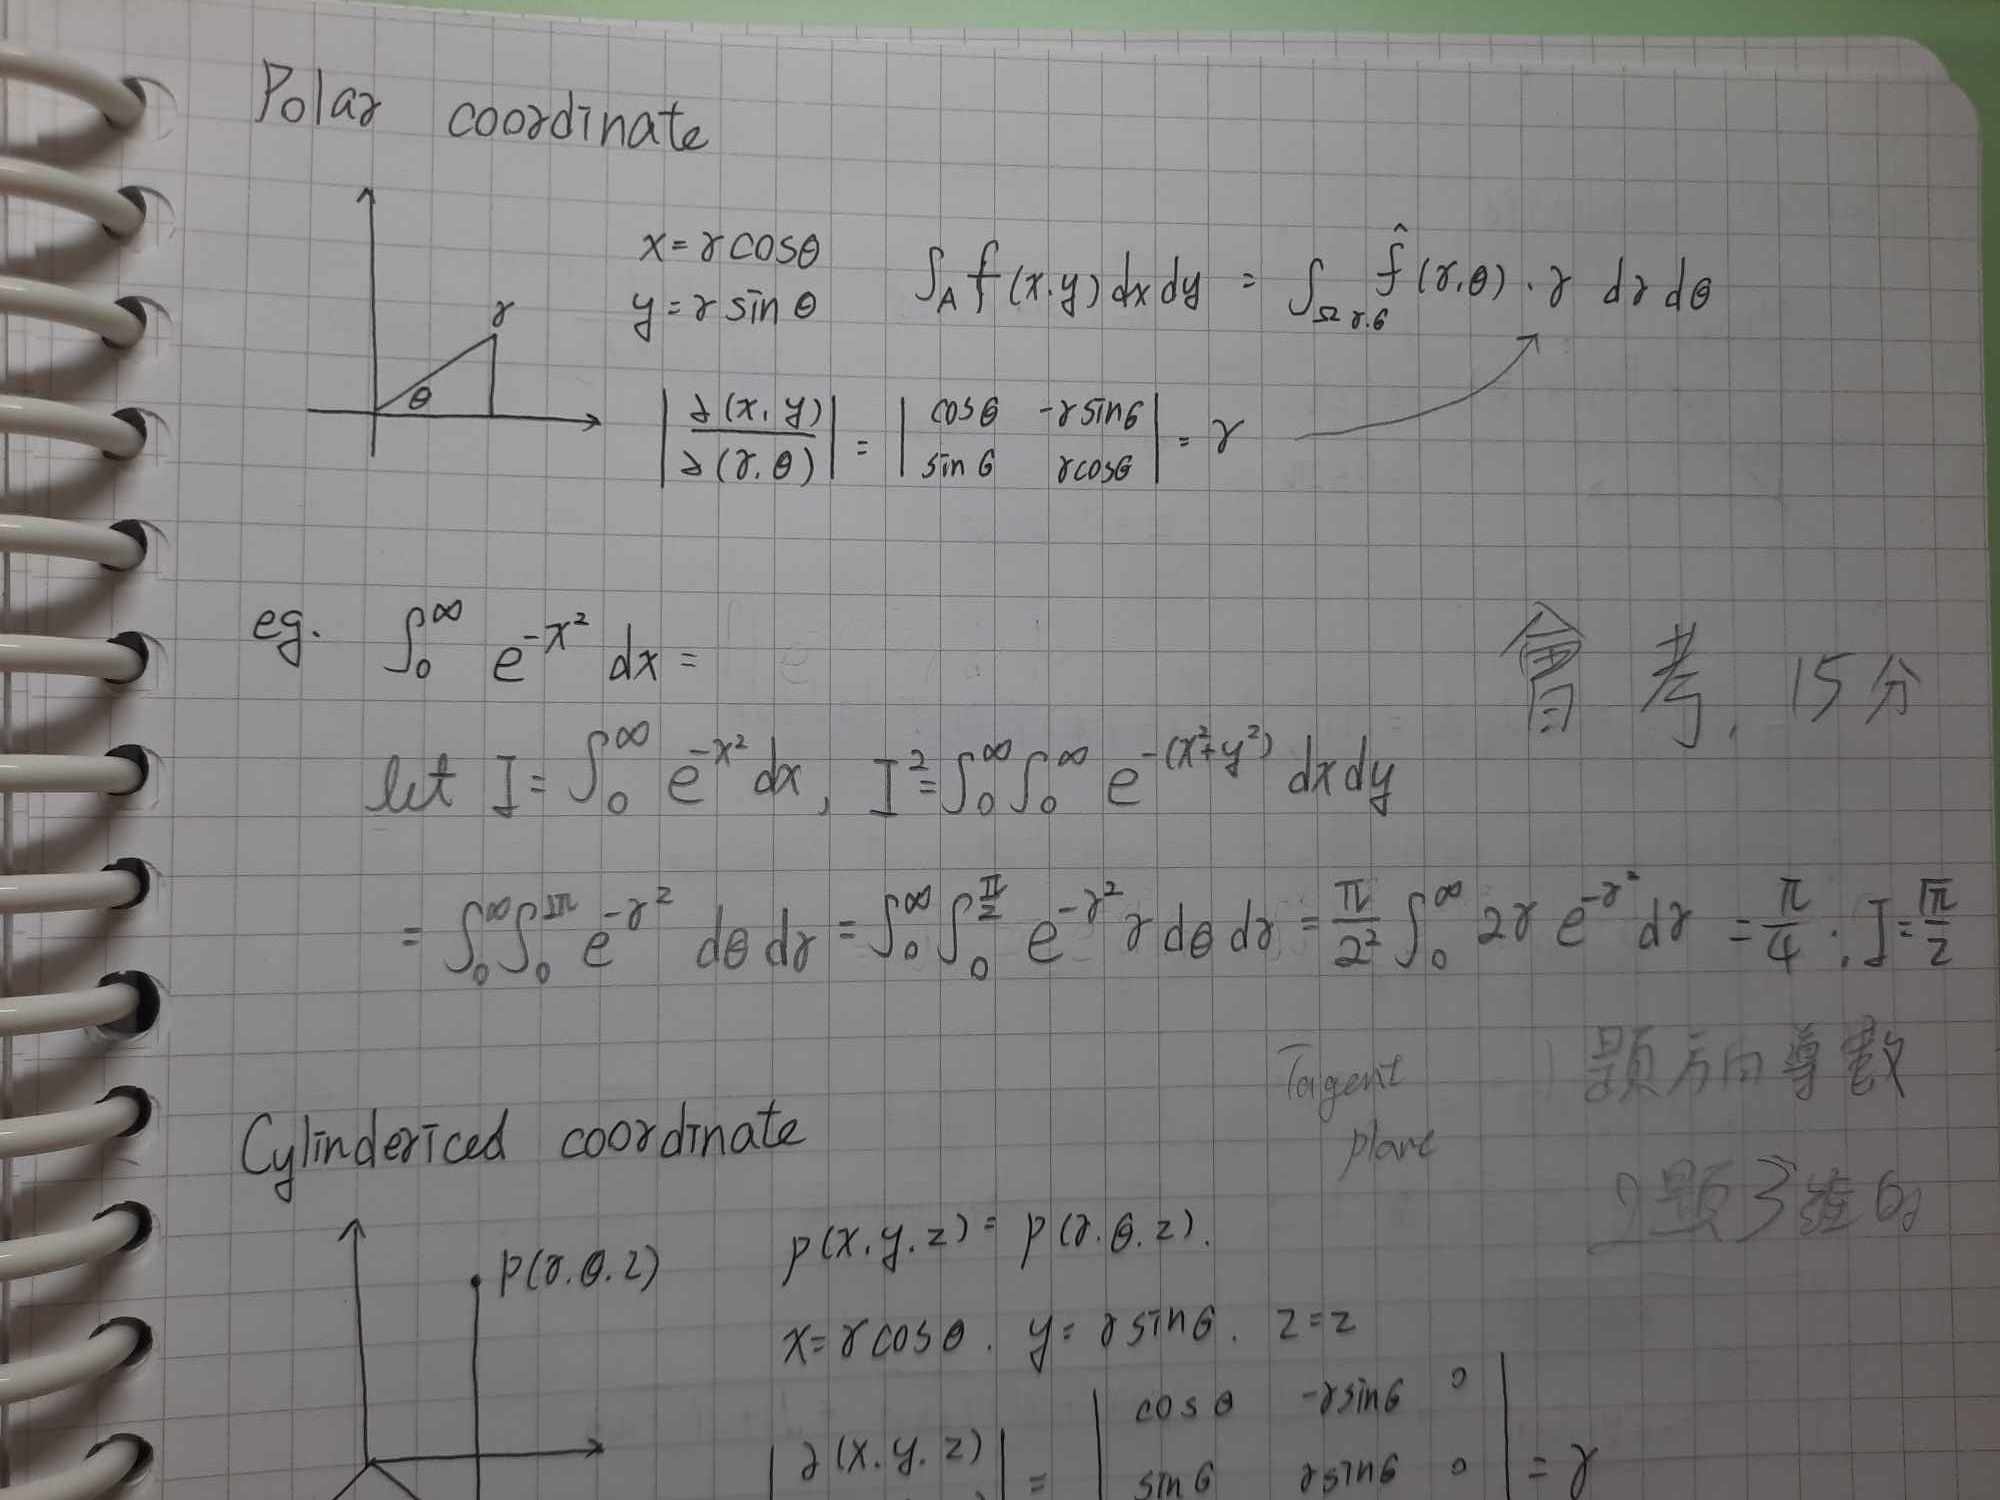 Polar coordinate
x = r cosθ
y = r sinθ
∫_A f(x.y) dx dy = ∫_Ω r.θ f̂(r,θ) · r dr dθ
r
θ
|∂(x, y) / ∂(r, θ)| = |cosθ -r sinθ
sinθ r cosθ| = r
eg. ∫_0^∞ e^{-x²} dx =
會考, 15分
let I = ∫_0^∞ e^{-x²} dx, I² = ∫_0^∞ ∫_0^∞ e^{-(x²+y²)} dx dy
= ∫_0^∞ ∫_0^{2π} e^{-r²} dθ dr = ∫_0^∞ ∫_0^{π/2} e^{-r²} r dθ dr = π/2² ∫_0^∞ 2r e^{-r²} dr = π/4 ; I = √π/2
Tagent
plane
1題方向導數
2題3維的
Cylindericed coordinate
p(r.θ.z)
p(x.y.z) = p(r.θ.z).
x = r cosθ. y = r sinθ. z = z
|∂(x.y.z) = |cosθ -r sinθ 0
sinθ r sinθ 0| = r